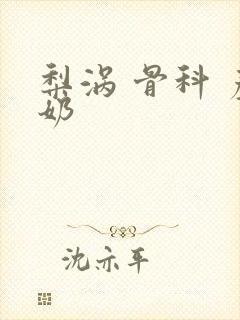 梨涡 骨科
奶
沈亦平